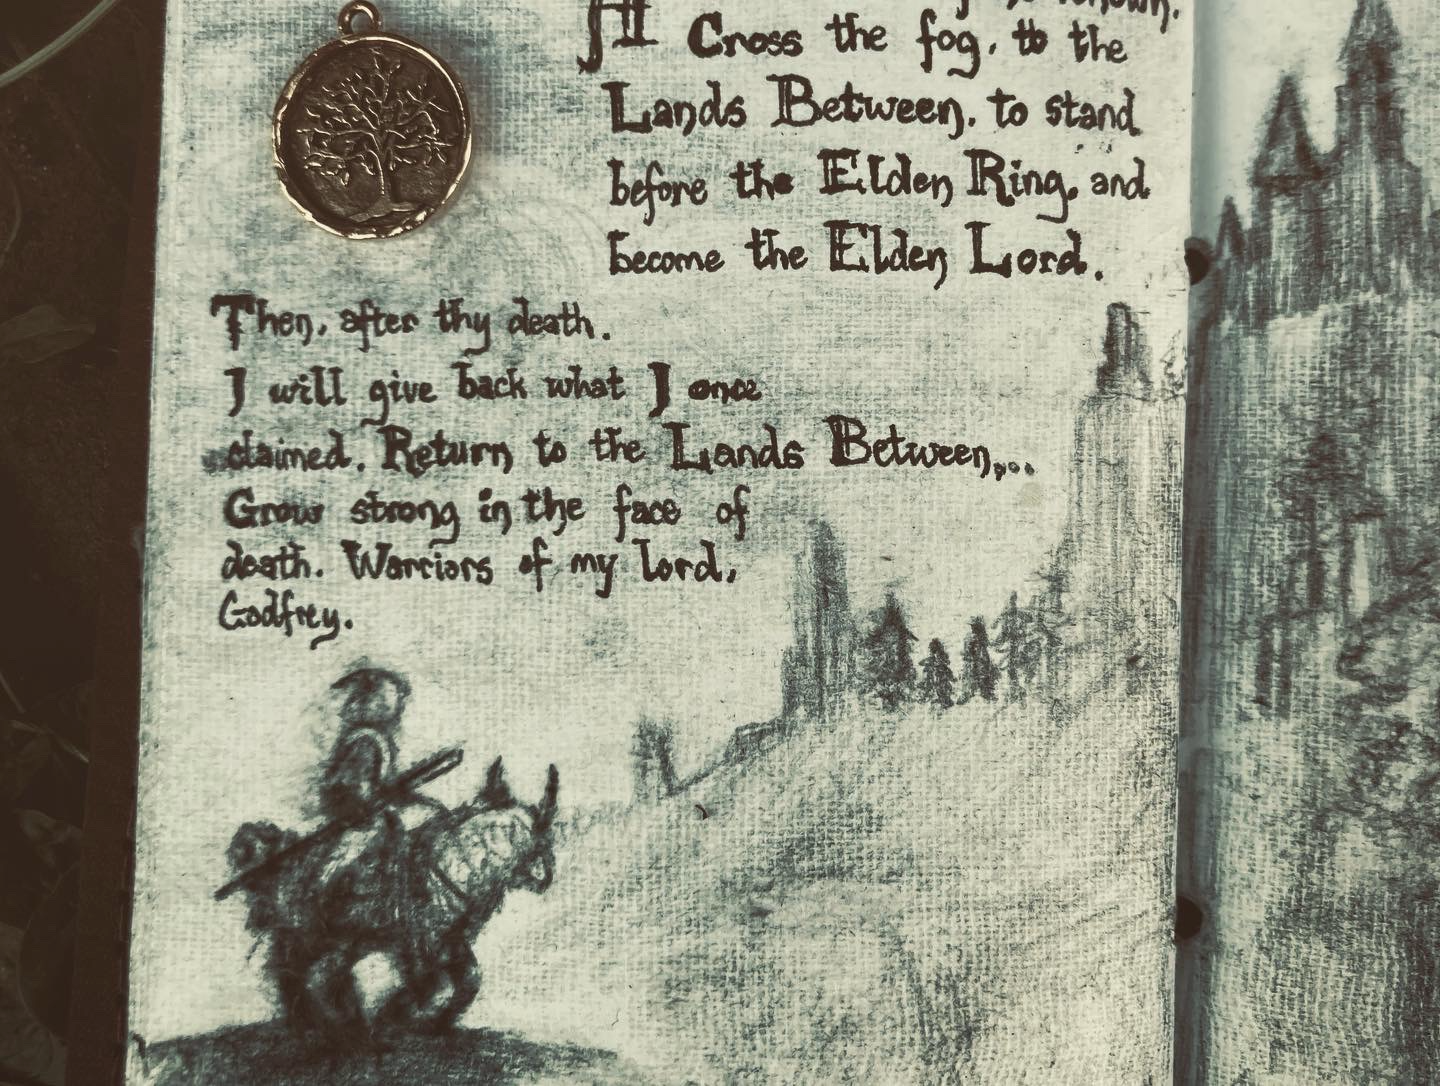 Cross the fog, to the
Lands Between, to stand
before the Elden Ring, and
become the Elden Lord.
Then, after thy death.
I will give back what I once
claimed. Return to the Lands Between,...
Grow strong in the face of
death. Warriors of my lord,
Godfrey.